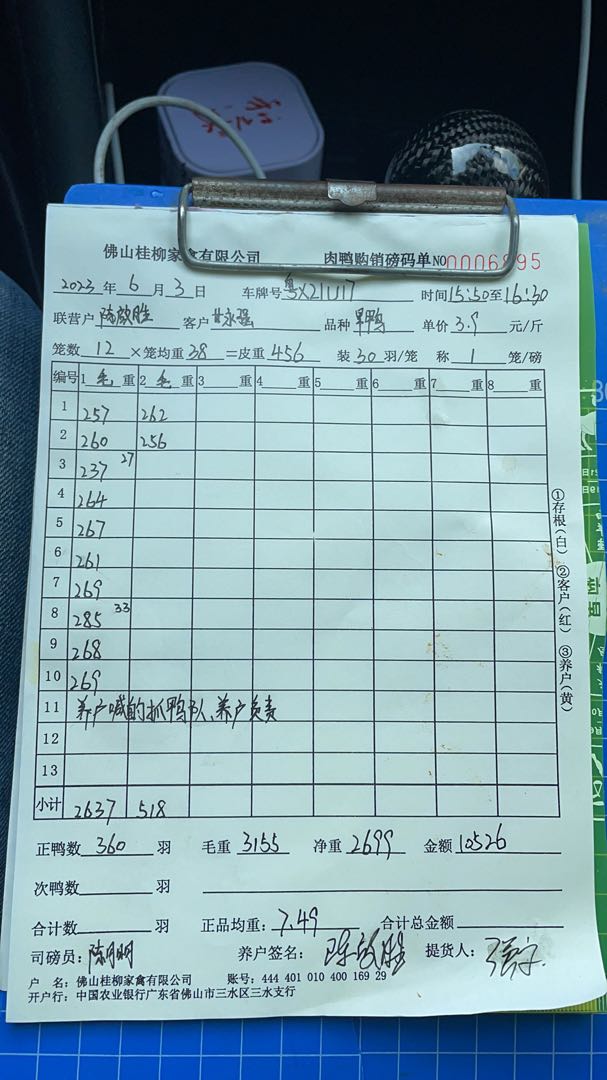 佛山桂柳家禽有限公司 肉鸭购销磅码单 NO 0006895
2023 年 6 月 3 日 车牌号 粤X21U17 时间 15:50 至 16:30
联营户 陈敬胜 客户 甘永强 品种 单价 3.9 元/斤
笼数 12 ×笼均重 38 =皮重 456 装 30 羽/笼 称 1 笼/磅
编号 1 毛 重 2 毛 重 3 重 4 重 5 重 6 重 7 重 8 重
1 257 262
2 260 256
3 237 27
4 264
5 267
6 261
7 269
8 285 33
9 268
10 269
11 养户喊的抓鸭队、养户负责
12
13
小计 2637 518
①存根(白) ②客户(红) ③养户(黄)
正鸭数 360 羽 毛重 3155 净重 2699 金额 10526
次鸭数 羽
合计数 羽 正品均重: 7.49 合计总金额
司磅员: 养户签名: 陈敬胜 提货人:
户 名: 佛山桂柳家禽有限公司 账号: 444 401 010 400 169 29
开户行: 中国农业银行广东省佛山市三水区三水支行